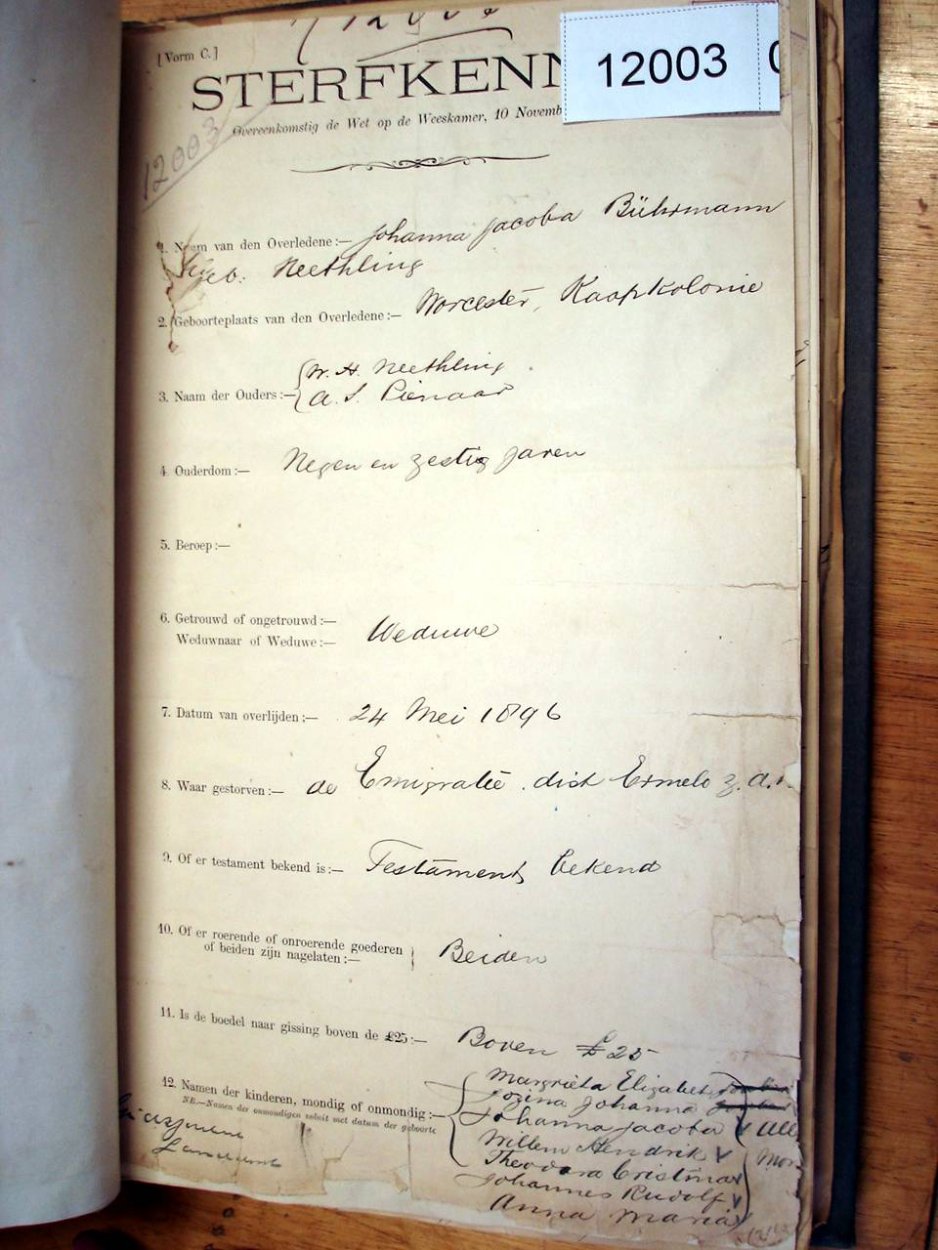 12003
[Vorm C.]
STERFKENN
Overeenkomstig de Wet op de Weeskamer, 10 Novemb
12003
1. Naam van den Overledene:— Johanna Jacoba Bührmann
geb. Neethling
2. Geboorteplaats van den Overledene:— Worcester, Kaapkolonie
3. Naam der Ouders:— W. H. Neethling
A. S. Pienaar
4. Ouderdom:— Negen en zestig Jaren
5. Beroep:—
6. Getrouwd of ongetrouwd:—
Weduwnaar of Weduwe:— Weduwe
7. Datum van overlijden:— 24 Mei 1896
8. Waar gestorven:— de Emigratie. dist Ermelo z.a.
9. Of er testament bekend is:— Testament bekend
10. Of er roerende of onroerende goederen
of beiden zijn nagelaten:— Beiden
11. Is de boedel naar gissing boven de £25:— Boven £25
12. Namen der kinderen, mondig of onmondig:—
NB.—Namen der onmondigen voluit met datum der geboorte
Margrieta Elizabeth
Gozina Johanna
Johanna Jacoba
Willem Hendrik
Theodora Cristina
Johannes Rudolf
Anna Maria